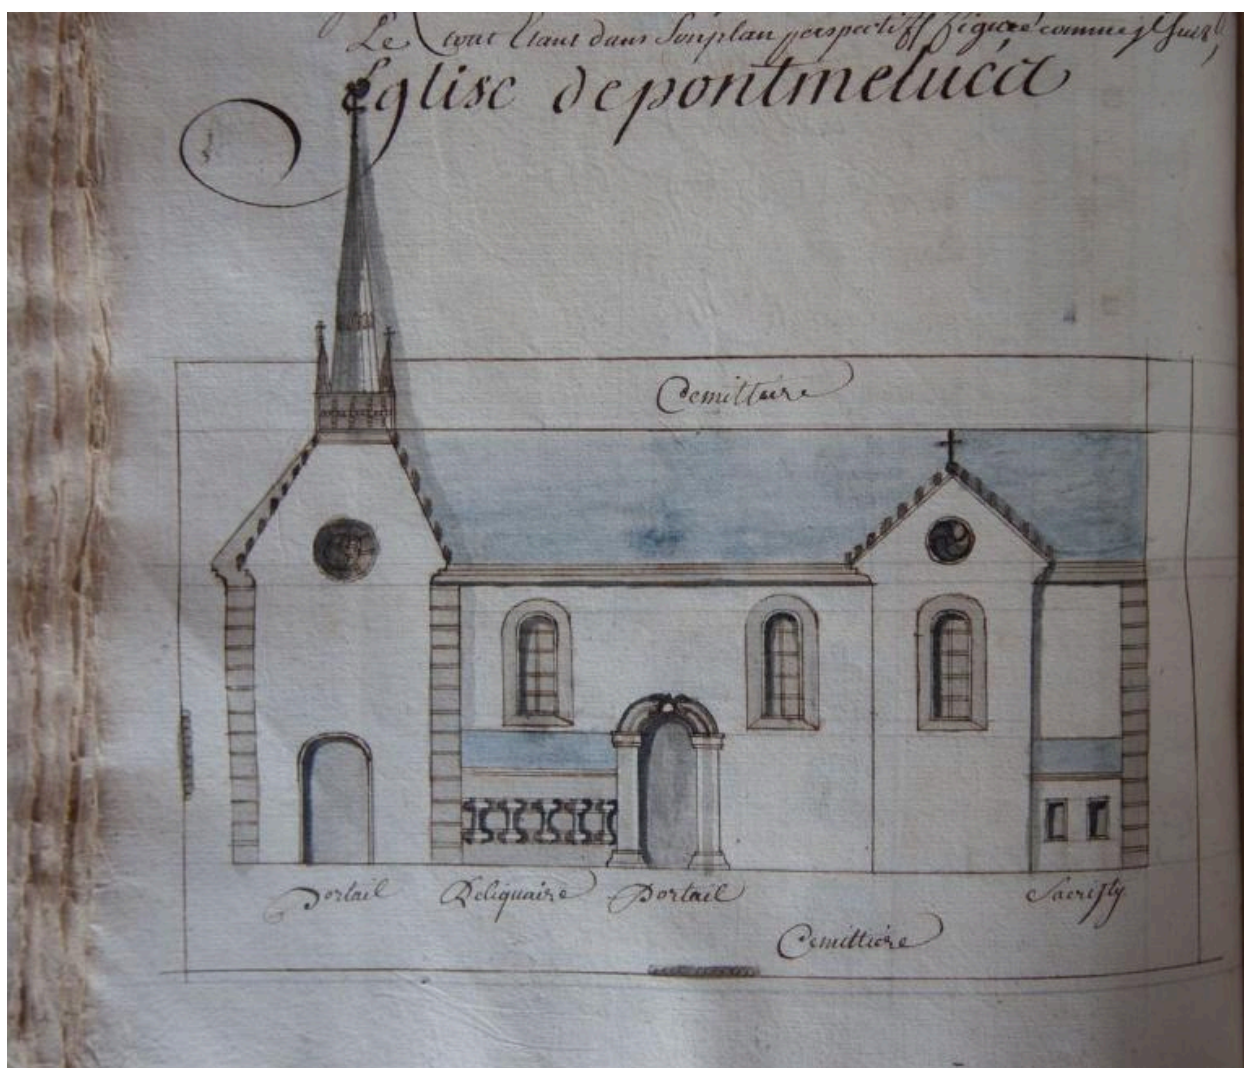 Le tout Etant dans Son plan perspectiff figuré comme jl Suit,
Eglise de pontmelucia
Cemittiere
Portail Reliquaire Portail Sacristy
Cemittiere